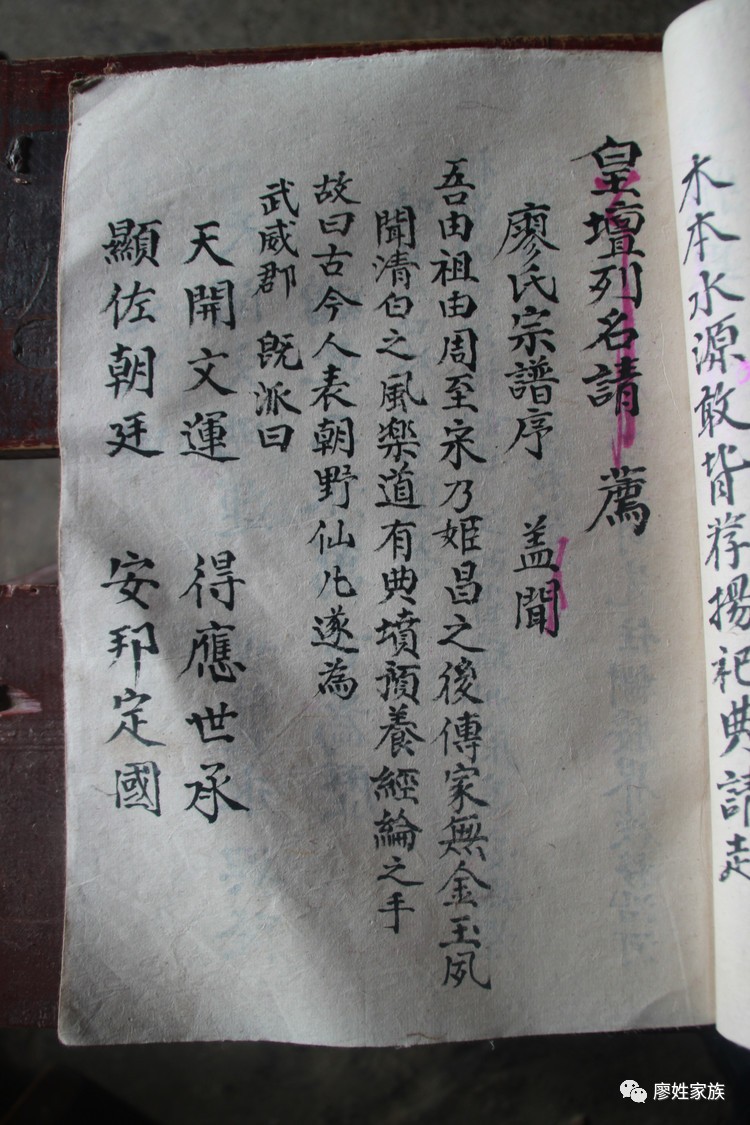 木本水源敢皆荐揚祀典請走
皇壇列名請 薦
廖氏宗譜序 盖聞
吾由祖由周至宋乃姬昌之後傳家無金玉夙
聞清白之風楽道有典墳預養經綸之手
故曰古今人表朝野仙凡遂為
武威郡 既派曰
天開文運 得應世承
顯佐朝廷 安邦定國
廖姓家族